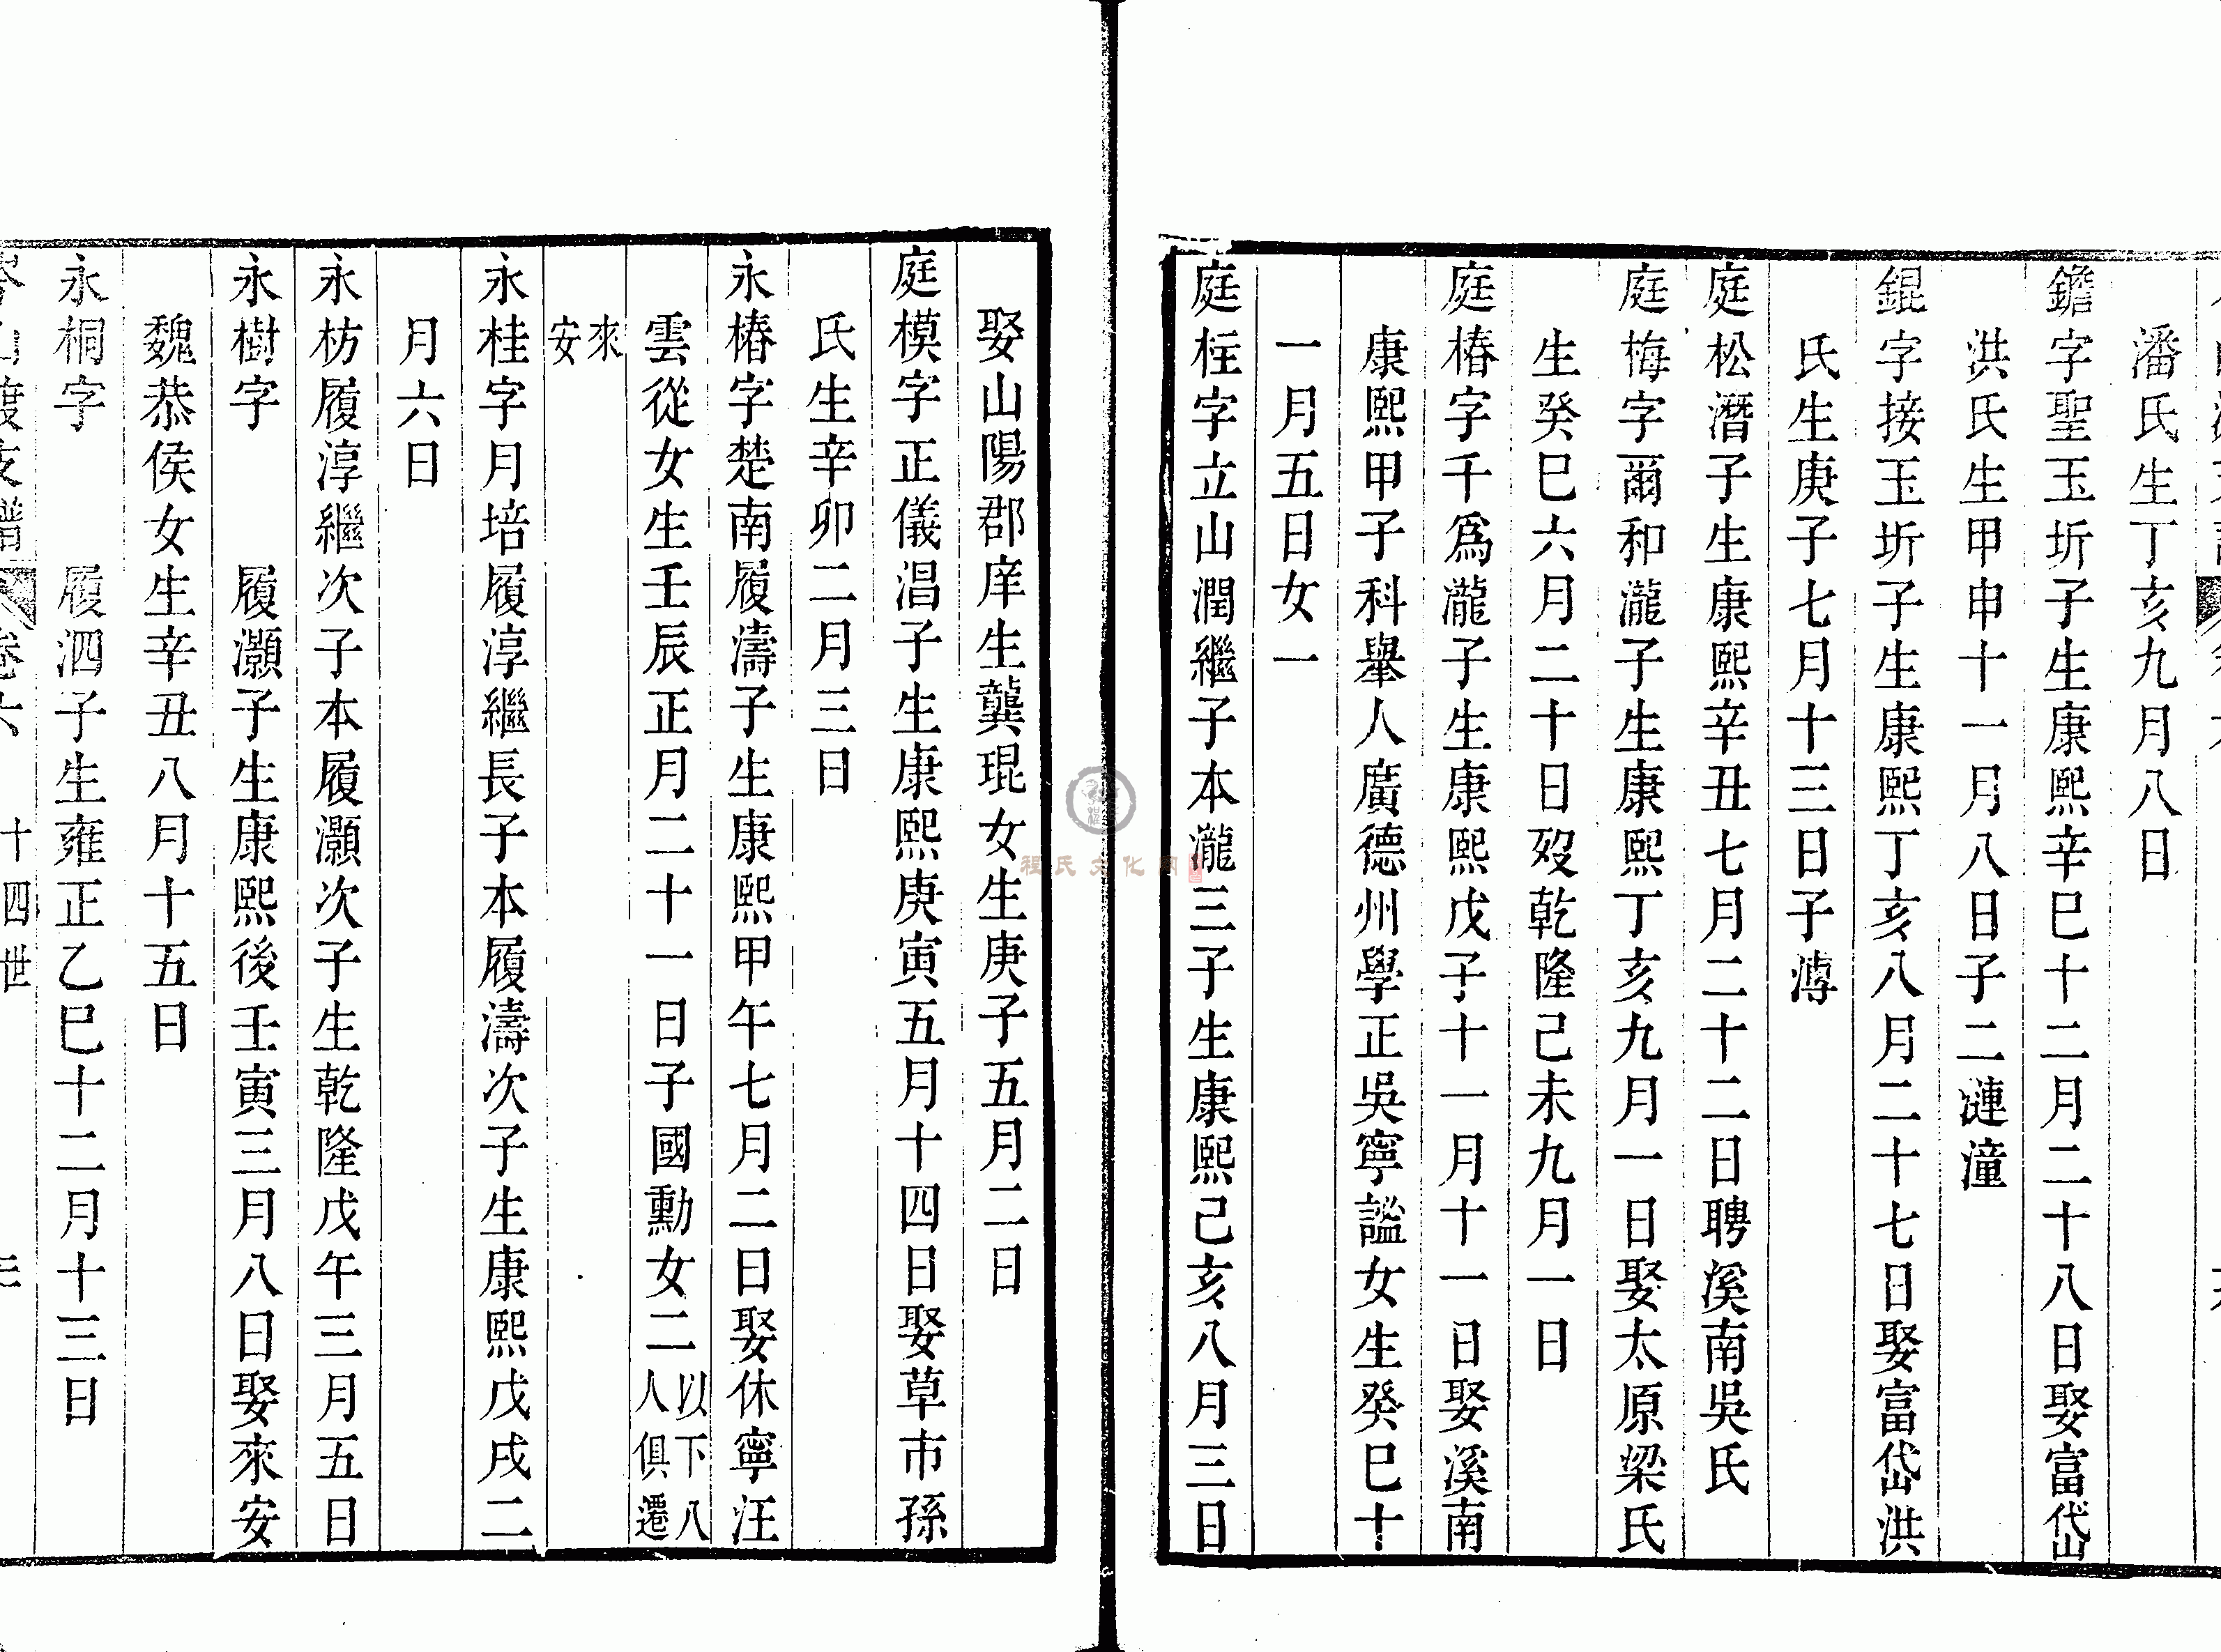 潘氏生丁亥九月八日
鐺字聖玉圻子生康熙辛巳十二月二十八日娶富岱
洪氏生甲申十一月八日子二漣潼
錕字接玉圻子生康熙丁亥八月二十七日娶富岱洪
氏生庚子七月十三日子溥
庭松潛子生康熙辛丑七月二十二日聘溪南吳氏
庭梅字爾和瀧子生康熙丁亥九月一日娶太原梁氏
生癸巳六月二十日歿乾隆己未九月一日
庭椿字千爲瀧子生康熙戊子十一月十一日娶溪南
康熙甲子科舉人廣德州學正吳寧謐女生癸巳十
一月五日女一
庭柱字立山潤繼子本瀧三子生康熙己亥八月三日
娶山陽郡庠生龔琨女生庚子五月二日
庭模字正儀淐子生康熙庚寅五月十四日娶草市孫
氏生辛卯二月三日
永椿字楚南履濤子生康熙甲午七月二日娶休寧汪
雲從女生壬辰正月二十一日子國勳女二以下八人俱遷
來安
永桂字月培履淳繼長子本履濤次子生康熙戊戌二
月六日
永枋履淳繼次子本履灝次子生乾隆戊午三月五日
永樹字 履灝子生康熙後壬寅三月八日娶來安
魏恭侯女生辛丑八月十五日
永桐字 履泗子生雍正乙巳十二月十三日
岑山渡支譜 卷六 十四世